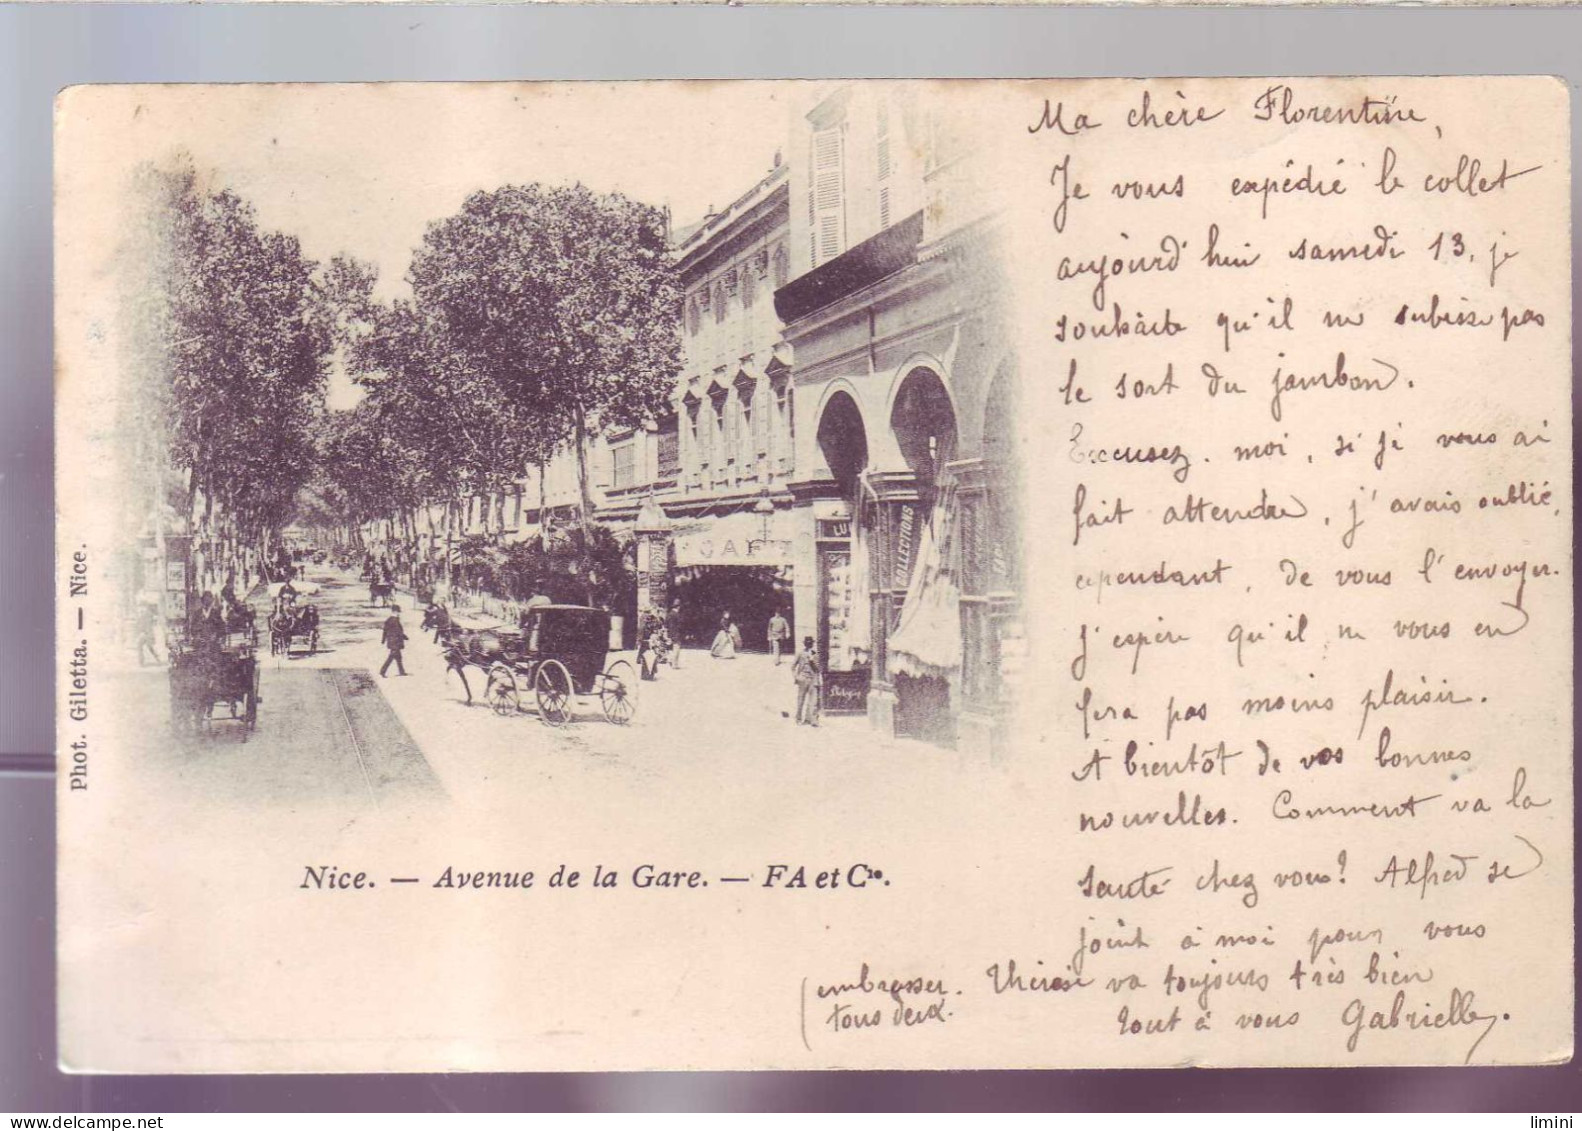 Ma chère Florentine,
Je vous expédié le collet
aujourd'hui samedi 13, je
souhaite qu'il ne subisse pas
le sort du jambon.
Excusez-moi, si je vous ai
fait attendre, j'avais oublié,
cependant, de vous l'envoyer.
J'espère qu'il ne vous en
fera pas moins plaisir.
A bientôt de vos bonnes
nouvelles. Comment va la
santé chez vous? Alfred se
joint à moi pour vous
embrasser. Thérèse va toujours très bien
tous deux.
tout à vous Gabrielle.
CAFÉ
LU
COLLECTIONS
Phot. Giletta. — Nice.
Nice. — Avenue de la Gare. — FA et Cie.
limini